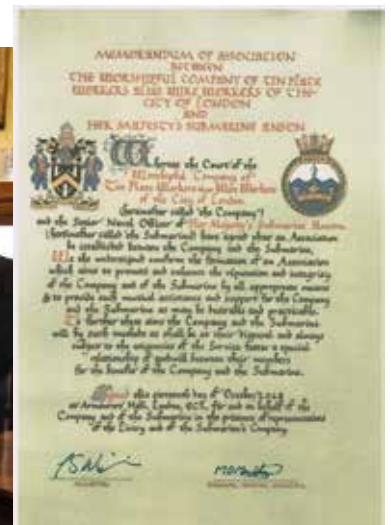 MEMORANDUM OF ASSOCIATION
BETWEEN
THE WORSHIPFUL COMPANY OF TIN PLATE
WORKERS ALIAS WIRE WORKERS OF THE
CITY OF LONDON
AND
HER MAJESTY'S SUBMARINE ANSON
Whereas the Court of the
Worshipful Company of
Tin Plate Workers alias Wire Workers
of the City of London
(hereinafter called 'the Company')
and the Senior Naval Officer of Her Majesty's Submarine Anson
(hereinafter called 'the Submarine') have agreed that an Association
be established between the Company and the Submarine,
We the undersigned confirm the formation of an Association
which aims to promote and enhance the reputation and integrity
of the Company and of the Submarine by all appropriate means
& to provide such mutual assistance and support for the Company
and the Submarine as may be feasible and practicable.
It is further their aim the Company and the Submarine
will by such methods as shall be at their disposal and always
subject to the exigencies of the Service foster a special
relationship of goodwill between their members
for the benefit of the Company and the Submarine.
Signed this day of October
at Armourers' Hall, London, EC2, for and on behalf of the
Company and of the Submarine in the presence of representatives
of the Livery and of the Submarine's Company.